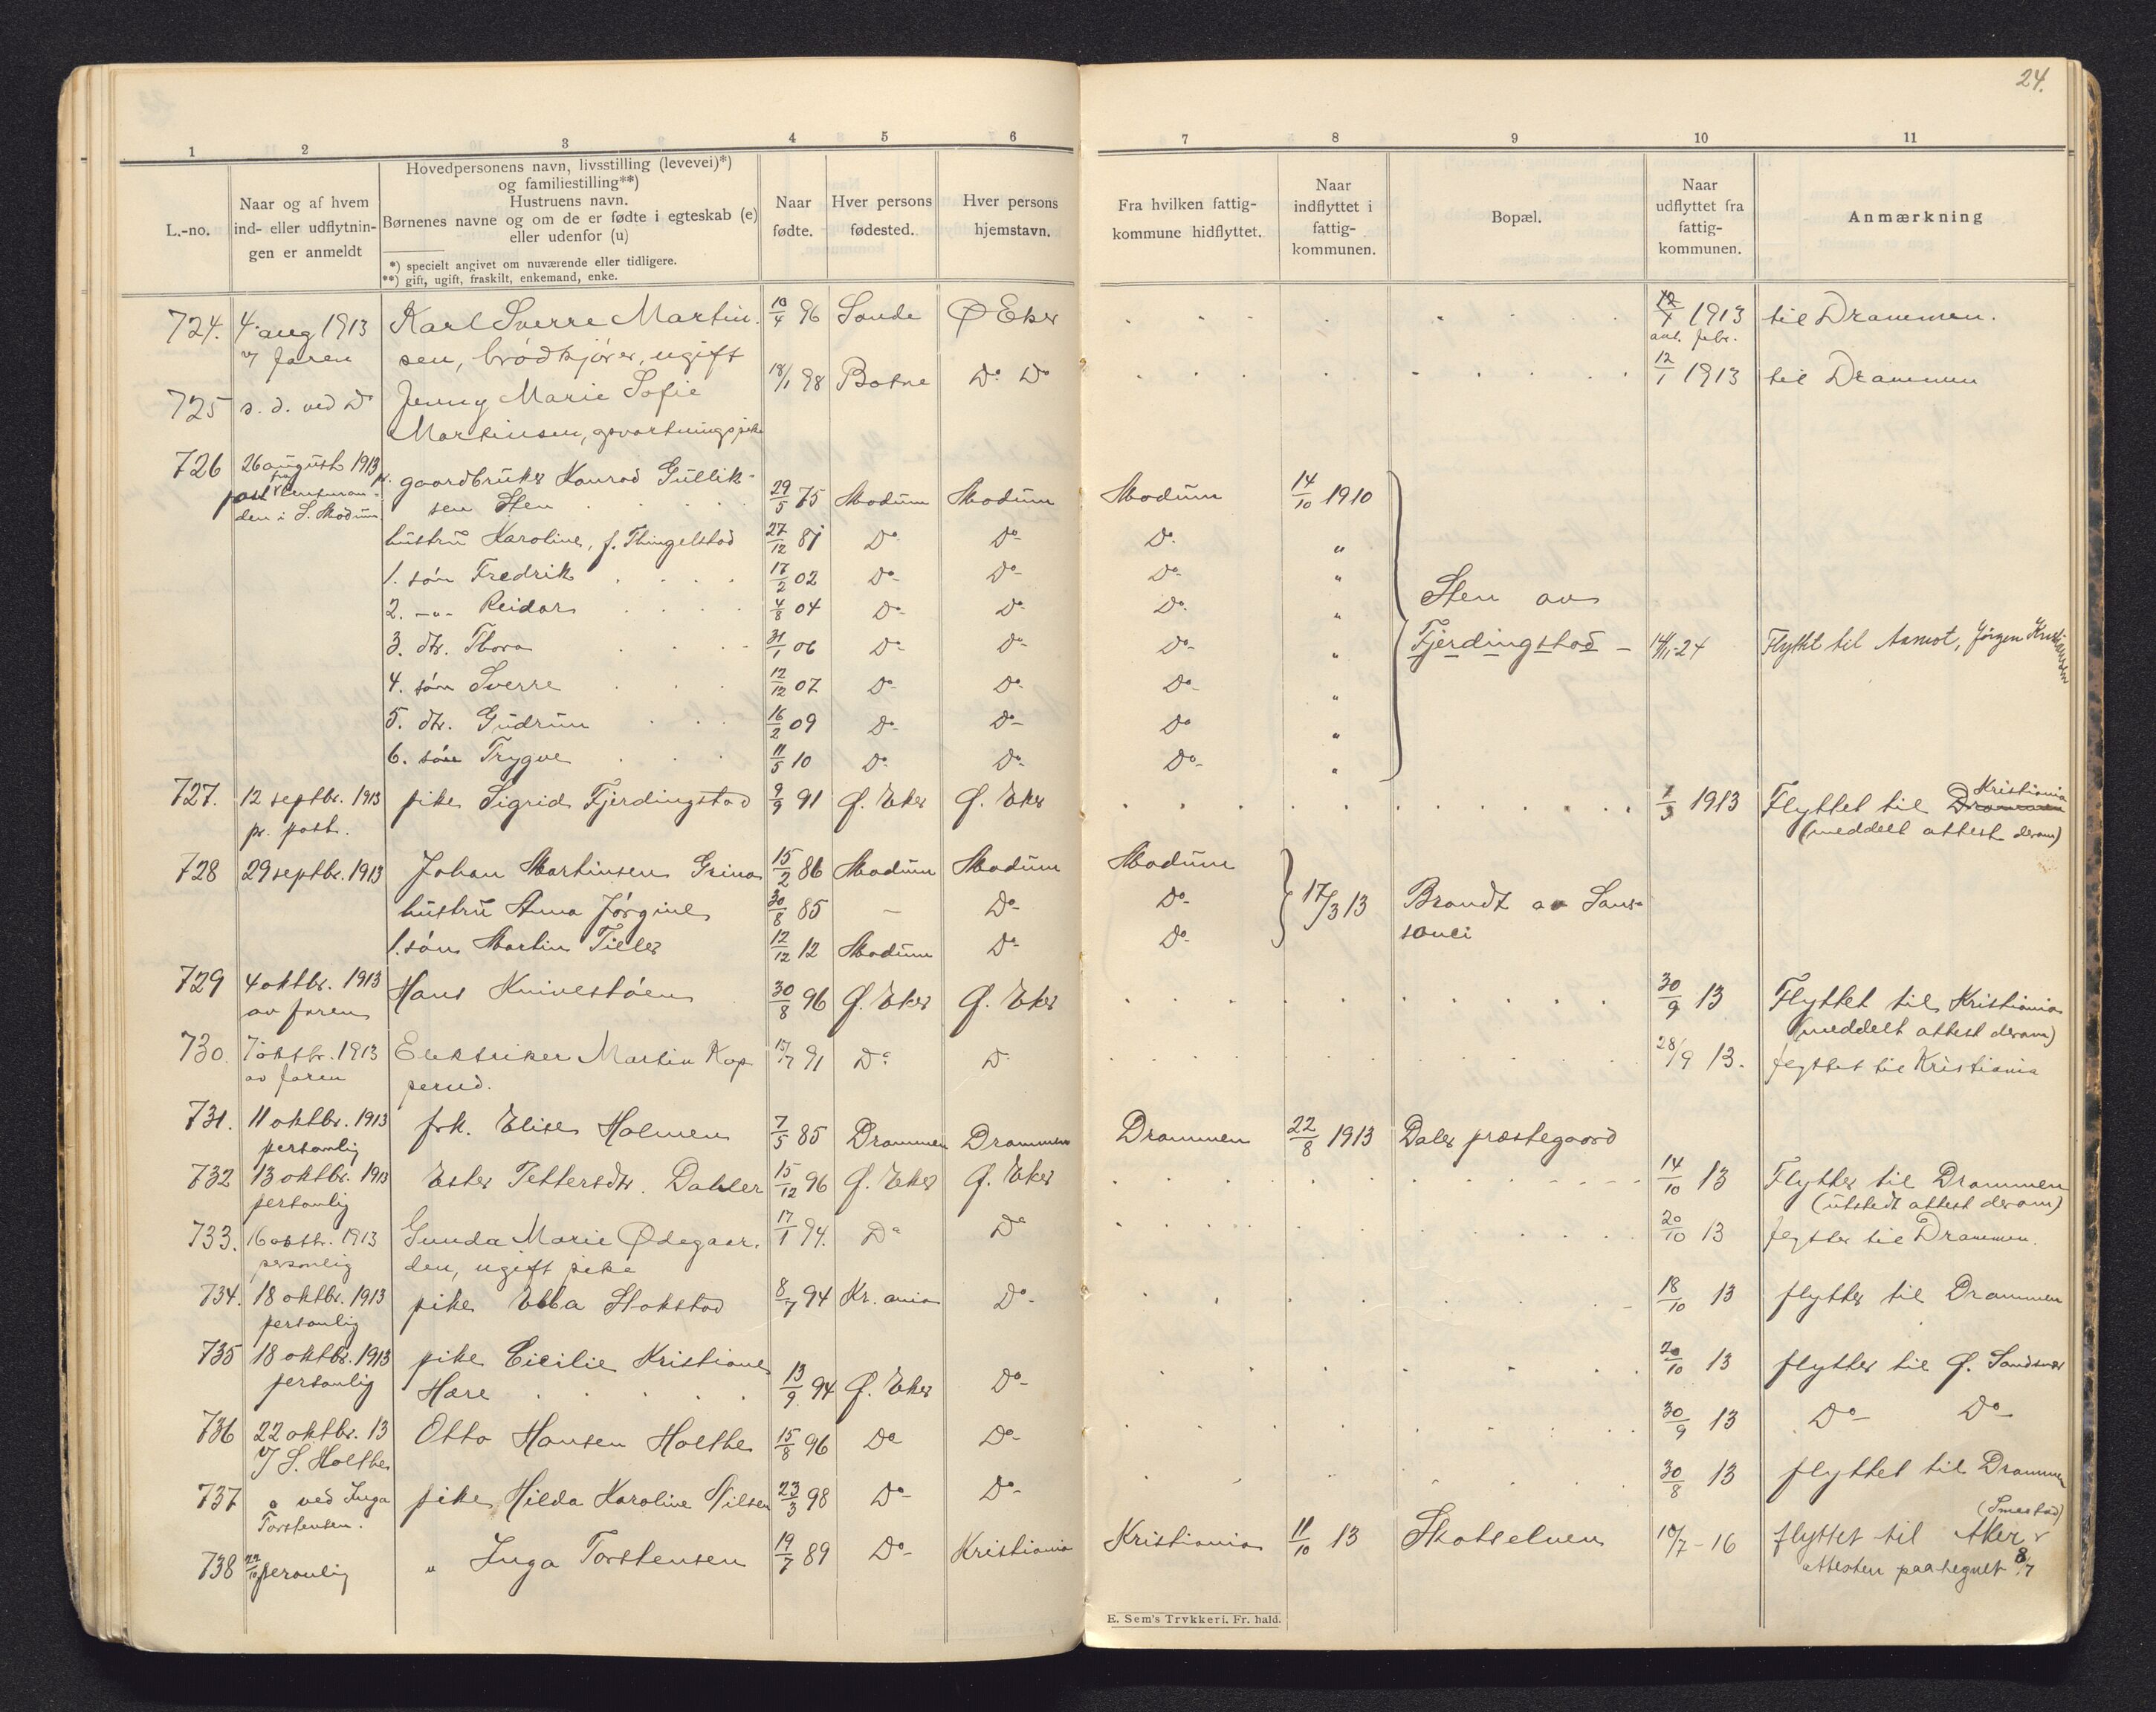 24.
1 2 3 4 5 6 7 8 9 10 11
L.-no.
Naar og af hvem
ind- eller udflytnin-
gen er anmeldt
Hovedpersonens navn, livsstilling (levevei)*)
og familiestilling**)
Hustruens navn.
Børnenes navne og om de er fødte i egteskab (e)
eller udenfor (u)
*) specielt angivet om nuværende eller tidligere.
**) gift, ugift, fraskilt, enkemand, enke.
Naar
fødte.
Hver persons
fødested.
Hver persons
hjemstavn.
Fra hvilken fattig-
kommune hidflyttet.
Naar
indflyttet i
fattig-
kommunen.
Bopæl.
Naar
udflyttet fra
fattig-
kommunen.
Anmærkning
724. 4 aug 1913 Karl Sverre Martin- 10/4 96 Sande Ø Eker 1913 til Drammen.
v/ faren sen, brødkjører, ugift
725 s. d. ved Do Jenny Marie Sofie 18/1 98 Botne Do Do 12/1 1913 til Drammen
Martinsen, opvartningspike
726 26 august 1913 gaardbruker Konrad Gullik-
den i S. Modum sen Sten 29/5 75 Modum Modum Modum 14/10 1910
hustru Karoline, f. Thingelstad 27/12 81 Do Do Do "
1. søn Fredrik 17/2 02 Do Do Do "
2. -"- Reidar 4/8 04 Do Do Do " Sten av
3. dtr. Thora 31/1 06 Do Do Do " Fjerdingstad - 14/11-24 Flyttet til Aamot, Jørgen Kristiansen
4. søn Sverre 12/12 07 Do Do Do "
5. dtr. Gudrun 16/2 09 Do Do Do "
6. søn Trygve 11/5 10 Do Do Do "
727. 12 septbr. 1913 pike Sigrid Fjerdingstad 9/9 91 Ø. Eker Ø. Eker 1/9 1913 Flyttet til Drammen Kristiania
pr. post. (meddelt attest derom)
728 29 septbr. 1913 Johan Martinsen Grina 15/2 86 Modum Modum Modum
hustru Anna Jørgine 30/8 85 - Do Do 17/3 13 Brandt av Sans-
1. søn Martin Tieler 12/12 12 Modum Do Do souci
729 4 oktbr. 1913 Hans Knivestøen 30/8 96 Ø. Eker Ø. Eker 30/9 13 Flyttet til Kristiania
av faren (meddelt attest derom)
730. 7 oktbr. 1913 Elektriker Martin Kop- 15/7 91 Do Do 28/9 13. flyttet til Kristiania
av faren perud.
731. 11 oktbr. 1913 frk. Elise Holmen 7/5 85 Drammen Drammen Drammen 22/8 1913 Daler præstegaard
personlig
732 13 oktbr. 1913 Ester Pettersdtr. Dahler 15/12 96 Ø. Eker Ø. Eker 14/10 13 Flytter til Drammen
personlig (utstedt attest derom)
733. 16 oktbr. 1913 Gunda Marie Ødegaar- 17/1 94. Do Do 20/10 13 flytter til Drammen.
personlig den, ugift pike
734. 18 oktbr. 1913 pike Ebba Stokstad 8/7 94 Kr.ania Do 18/10 13 flytter til Drammen
personlig
735 18 oktbr. 1913 pike Cicilie Kristiane
personlig Hære 13/9 94 Ø. Eker Do 20/10 13 flytter til Ø. Sandsvær
736 22 oktbr. 13 Otto Hansen Holthe 15/8 96 Do Do 30/9 13 Do Do
v/ S. Holthe
737 " ved Inga pike Hilda Karoline Nilsen 23/3 98 Do Do 30/8 13 flyttet til Drammen
Torstensen.
738 22/10 personlig " Inga Torstensen 19/7 89 Do Kristiania Kristiania 11/10 13 Skotselven 10/7-16 flyttet til Aker (Smestad)
attesten paategnet 8/7
E. Sem's Trykkeri. Fr. hald.